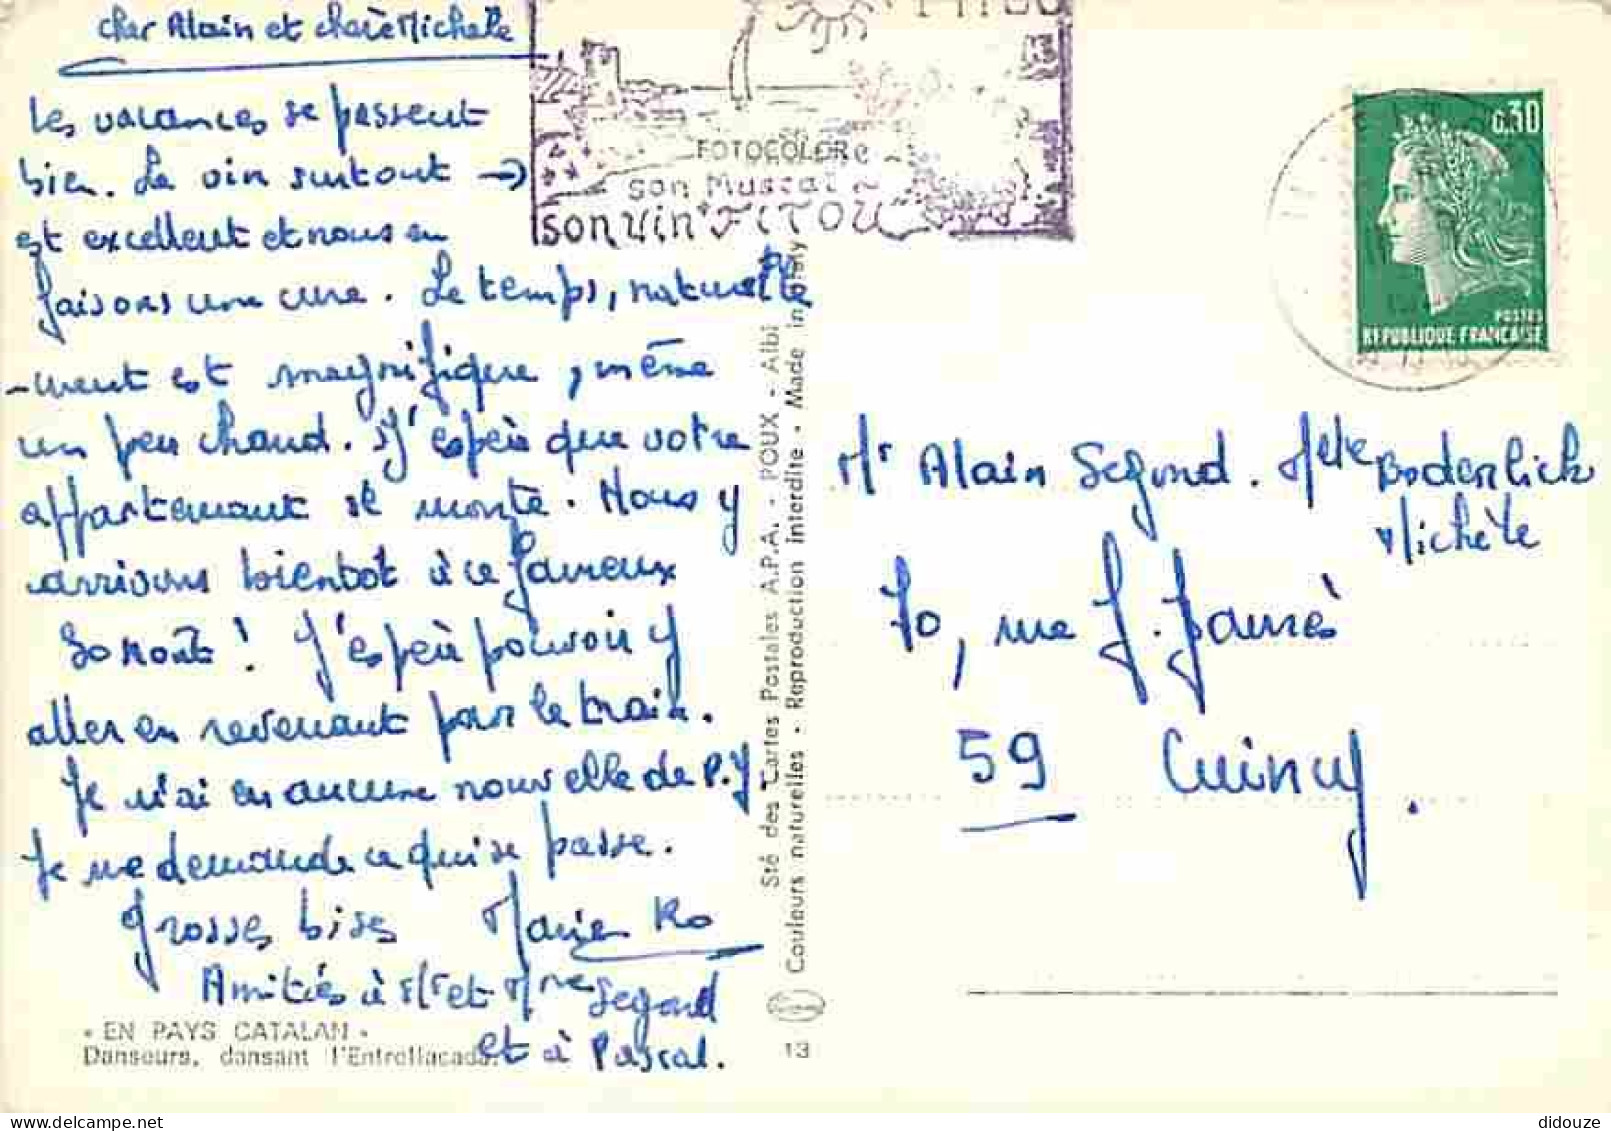 cher Alain et chère Michelle
Les vacances se passent
bien. Le vin surtout →
est excellent et nous en
faisons une cure. Le temps, naturelle
-ment est magnifique, même
un peu chaud. J'espère que votre
appartement se monte. Nous y
arrivons bientôt à ce fameux
! J'espère pouvoir y
aller en revenant par le train.
Je n'ai eu aucune nouvelle de P.Y.
Je me demande ce qui se passe.
Grosses bises Marie Ro
Amitiés à Mr et Mme Segond
et à Pascal.
« EN PAYS CATALAN »
Danseurs, dansant l'Entrellacada.
FITOU
FOTOCOLOR
son Muscat
son vin FITOU
Sté des Cartes Postales A.P.A. - POUX - Albi
Couleurs naturelles • Reproduction interdite • Made in Italy
13
0,30
POSTES
REPUBLIQUE FRANÇAISE
Mr Alain Segond. Melle Boderlick
Michèle
70, rue J. Jaurès
59 Cuincy.
didouze